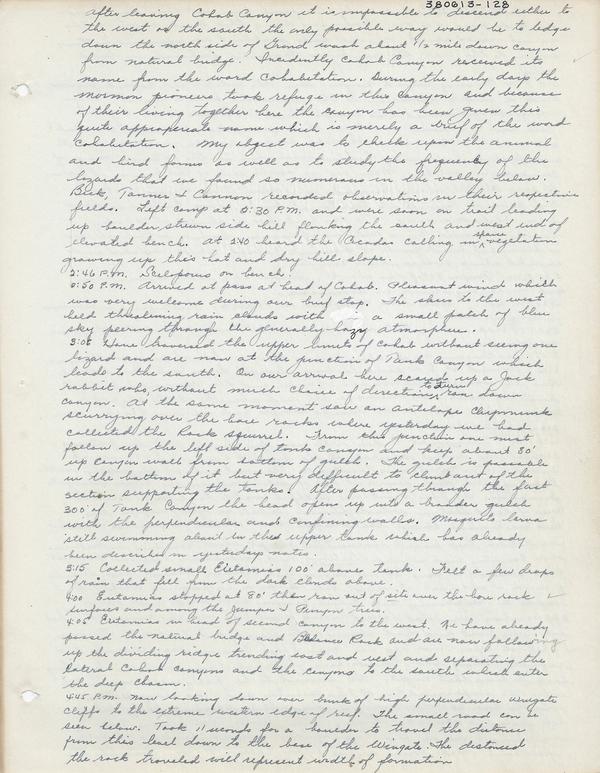 380613-128
after leaving Cohab Canyon it is impossible to descend either to
the west or the south the only possible way would be to ledge
down the north side of Grand wash about 1/2 mile down canyon
from natural bridge. Incidently Cohab Canyon received its
name from the word Cohabitation. During the early days the
mormon pioneers took refuge in this canyon and because
of their living together here the canyon has been given this
quite appropriate name which is merely a brief of the word
Cohabitation. My object was to check upon the animal
and bird forms as well as to study the frequency of the
lizards that we found so numerous in the valley below.
Beck, Tanner & Cannon recorded observations in their respective
fields. Left camp at 2:30 P.M. and were soon on trail leading
up boulder strewn side hill flanking the south and west end of
elevated bench. At 2:40 heard the Cicadas calling in sparse vegetation
growing up this hot and dry hill slope.
2:46 P.M. Sceloporus on bench.
2:50 P.M. Arrived at pass at head of Cohab. Pleasant wind which
was very welcome during our brief stop. The skies to the west
held threatening rain clouds with a small patch of blue
sky peering through the generally hazy atmosphere.
3:05 Have traversed the upper limits of Cohab without seeing one
lizard and are now at the junction of Tank Canyon which
leads to the south. On our arrival here scared up a Jack
rabbit who, without much choice of direction to turn, ran down
canyon. At the same moment saw an Antelope Chipmunk
scurrying over the bare rocks where yesterday we had
collected the Rock squirrel. From this junction one must
follow up the left side of tank canyon and keep about 30'
up canyon wall from bottom of gulch. The gulch is passable
in the bottom of it but very difficult to climb out of the
section supporting the tanks. After passing through the first
300' of Tank Canyon the head opens up into a broader gulch
with the perpendicular and confining walls. Mosquito larva
still swimming about in the upper tank which has already
been described in yesterdays notes.
3:15 Collected small Eutamias 100' above tank. Felt a few drops
of rain that fell from the dark clouds above.
4:00 Eutamias stopped at 80' then ran out of site over the bare rock
surfaces and among the Juniper & Pinyon trees.
4:05 Eutamias in head of second canyon to the west. We have already
passed the natural bridge and Balance Rock and are now following
up the dividing ridge trending east and west and separating the
lateral Cohab canyons and the canyons to the south which enter
the deep chasm.
4:45 P.M. now looking down over brink of high perpendicular Wingate
cliffs to the extreme western edge of reef. The small road can be
seen below. Took 11 seconds for a boulder to travel the distance
from this level down to the base of the Wingate. The distanced
the rock traveled will represent width of formation